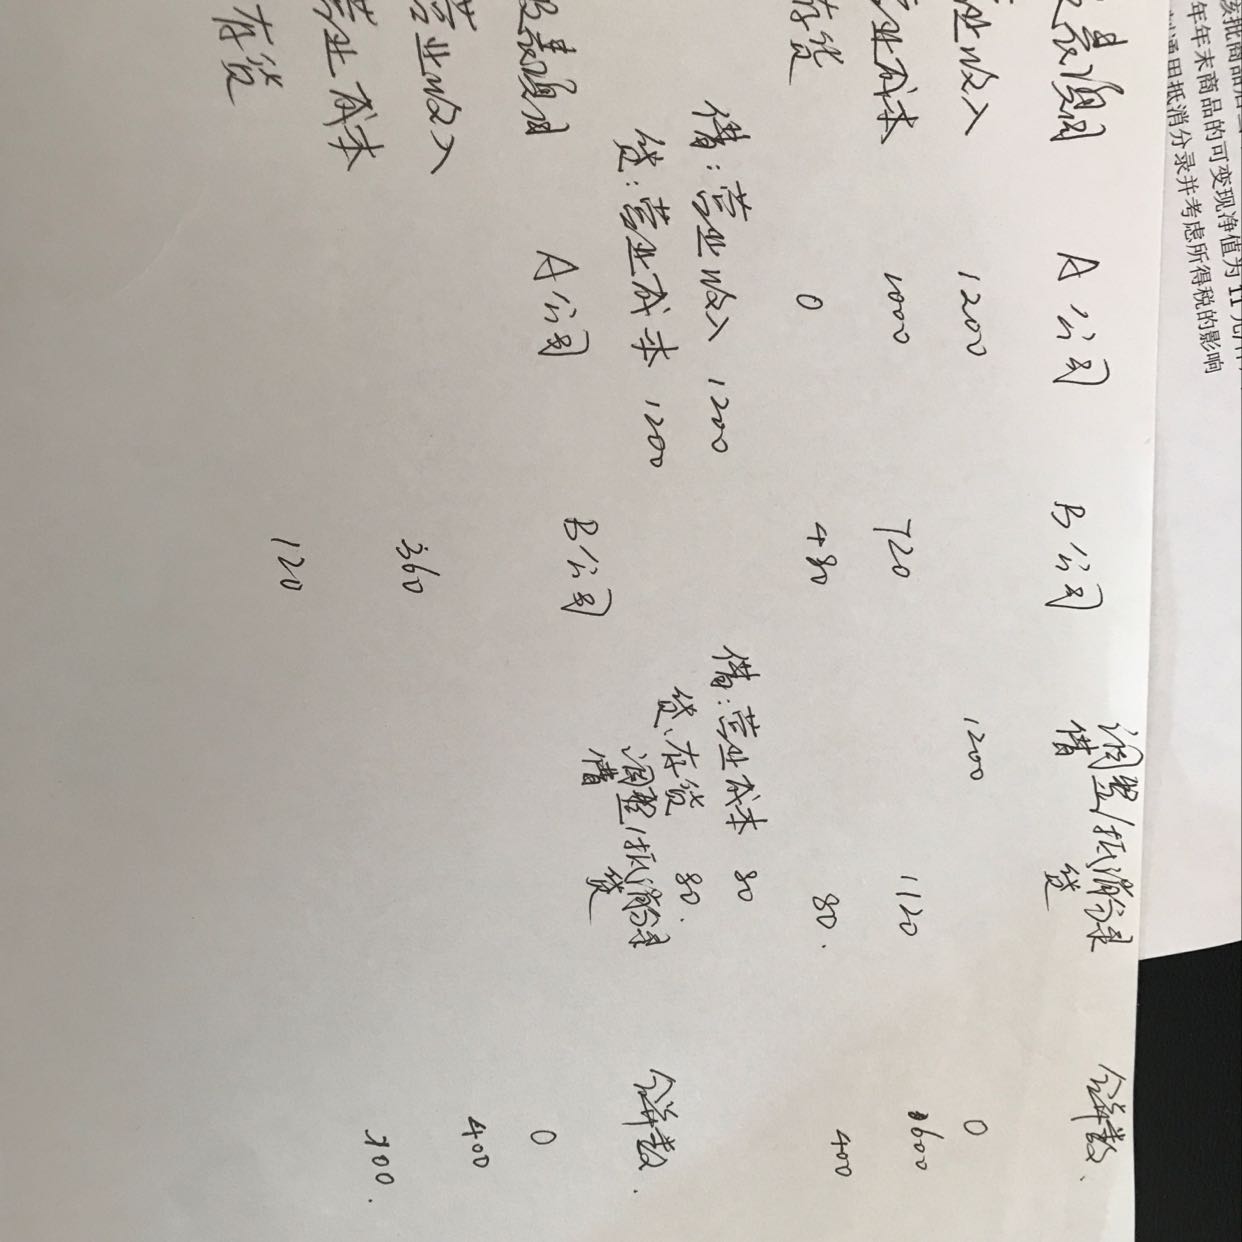 年年末商品的可变现净值为11元
通用抵消分录并考虑所得税的影响
报表项目 A公司 B公司 调整/抵消分录 合并数.
借 贷
业收入 1200 1200 0
业成本 1000 720 1120 600
存货 0 480 80. 400
借:营业收入 1200 借:营业成本 80
贷:营业成本 1200 贷:存货 80.
报表项目 A公司 B公司 调整/抵消分录 合并数.
借 贷
营业收入 0
营业成本 360 400
存货 120 100.